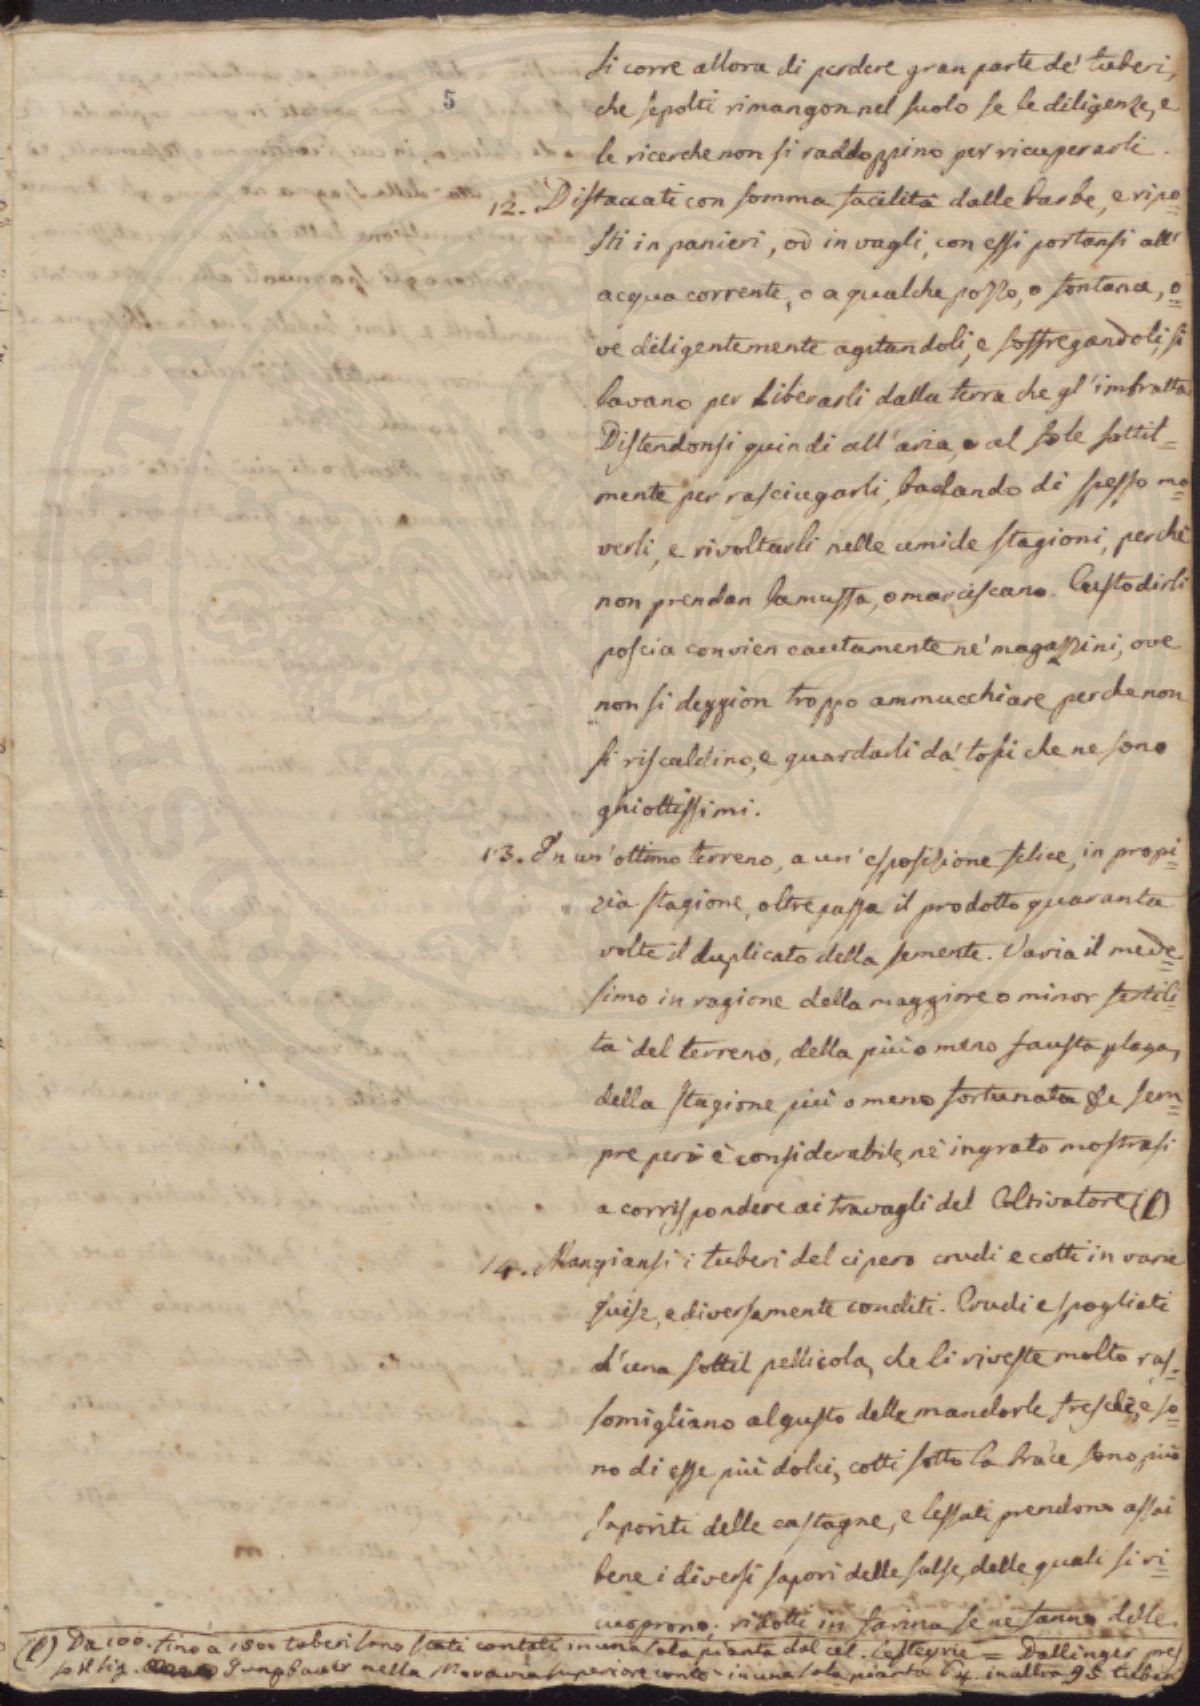 5
si corre allora di perdere gran parte de' tuberi,
che sepolti rimangon nel suolo se le diligenze, e
le ricerche non si raddoppino per ricuperarli.
12. Distaccati con somma facilità dalle barbe, e ripo=
sti in panieri, od in vagli, con essi portansi all'
acqua corrente, o a qualche pozzo, o fontana, o=
ve diligentemente agitandoli, e soffregandoli, si
lavano per liberarli dalla terra che gl'imbratta
Distendonsi quindi all'aria, o al sole sottil=
mente per rasciugarli, badando di spesso mo=
verli, e rivoltarli nelle umide stagioni, perchè
non prendan la muffa, o marciscano. Custodirli
poscia convien cautamente ne' magazzini, ove
non si deggion troppo ammucchiare perche non
si riscaldino, e guardarli da' topi che ne sono
ghiottissimi.
13. In un'ottimo terreno, a un'esposizione felice, in propi=
zia stagione, oltrepassa il prodotto quaranta
volte il duplicato della semente. Varia il mede=
simo in ragione della maggiore o minor fertili=
tà del terreno, della più o meno fausta plaga,
della stagione più o meno fortunata e sem=
pre però è considerabile, nè ingrato mostrasi
a corrispondere ai travagli del Coltivatore (l)
14. Mangiansi i tuberi del cipero crudi e cotti in varie
guise, e diversamente conditi. Crudi e spogliati
d'una sottil pellicola, che li riveste molto ras=
somigliano al gusto delle mandorle fresche, e so=
no di esse più dolci, cotti sotto la brace sono più
saporiti delle castagne, e lessati prendono assai
bene i diversi sapori delle salse, delle quali si ri=
cuoprono; ridotti in farina se ne fanno delle
(l) Da 100. fino a 150. tuberi sono stati contati in una sola pianta dal cel. Lasteyrie = Dallinger pres
so il sig. Jungbauer nella Moravia superiore contò in una sola pianta 64. in altra 95 tuberi